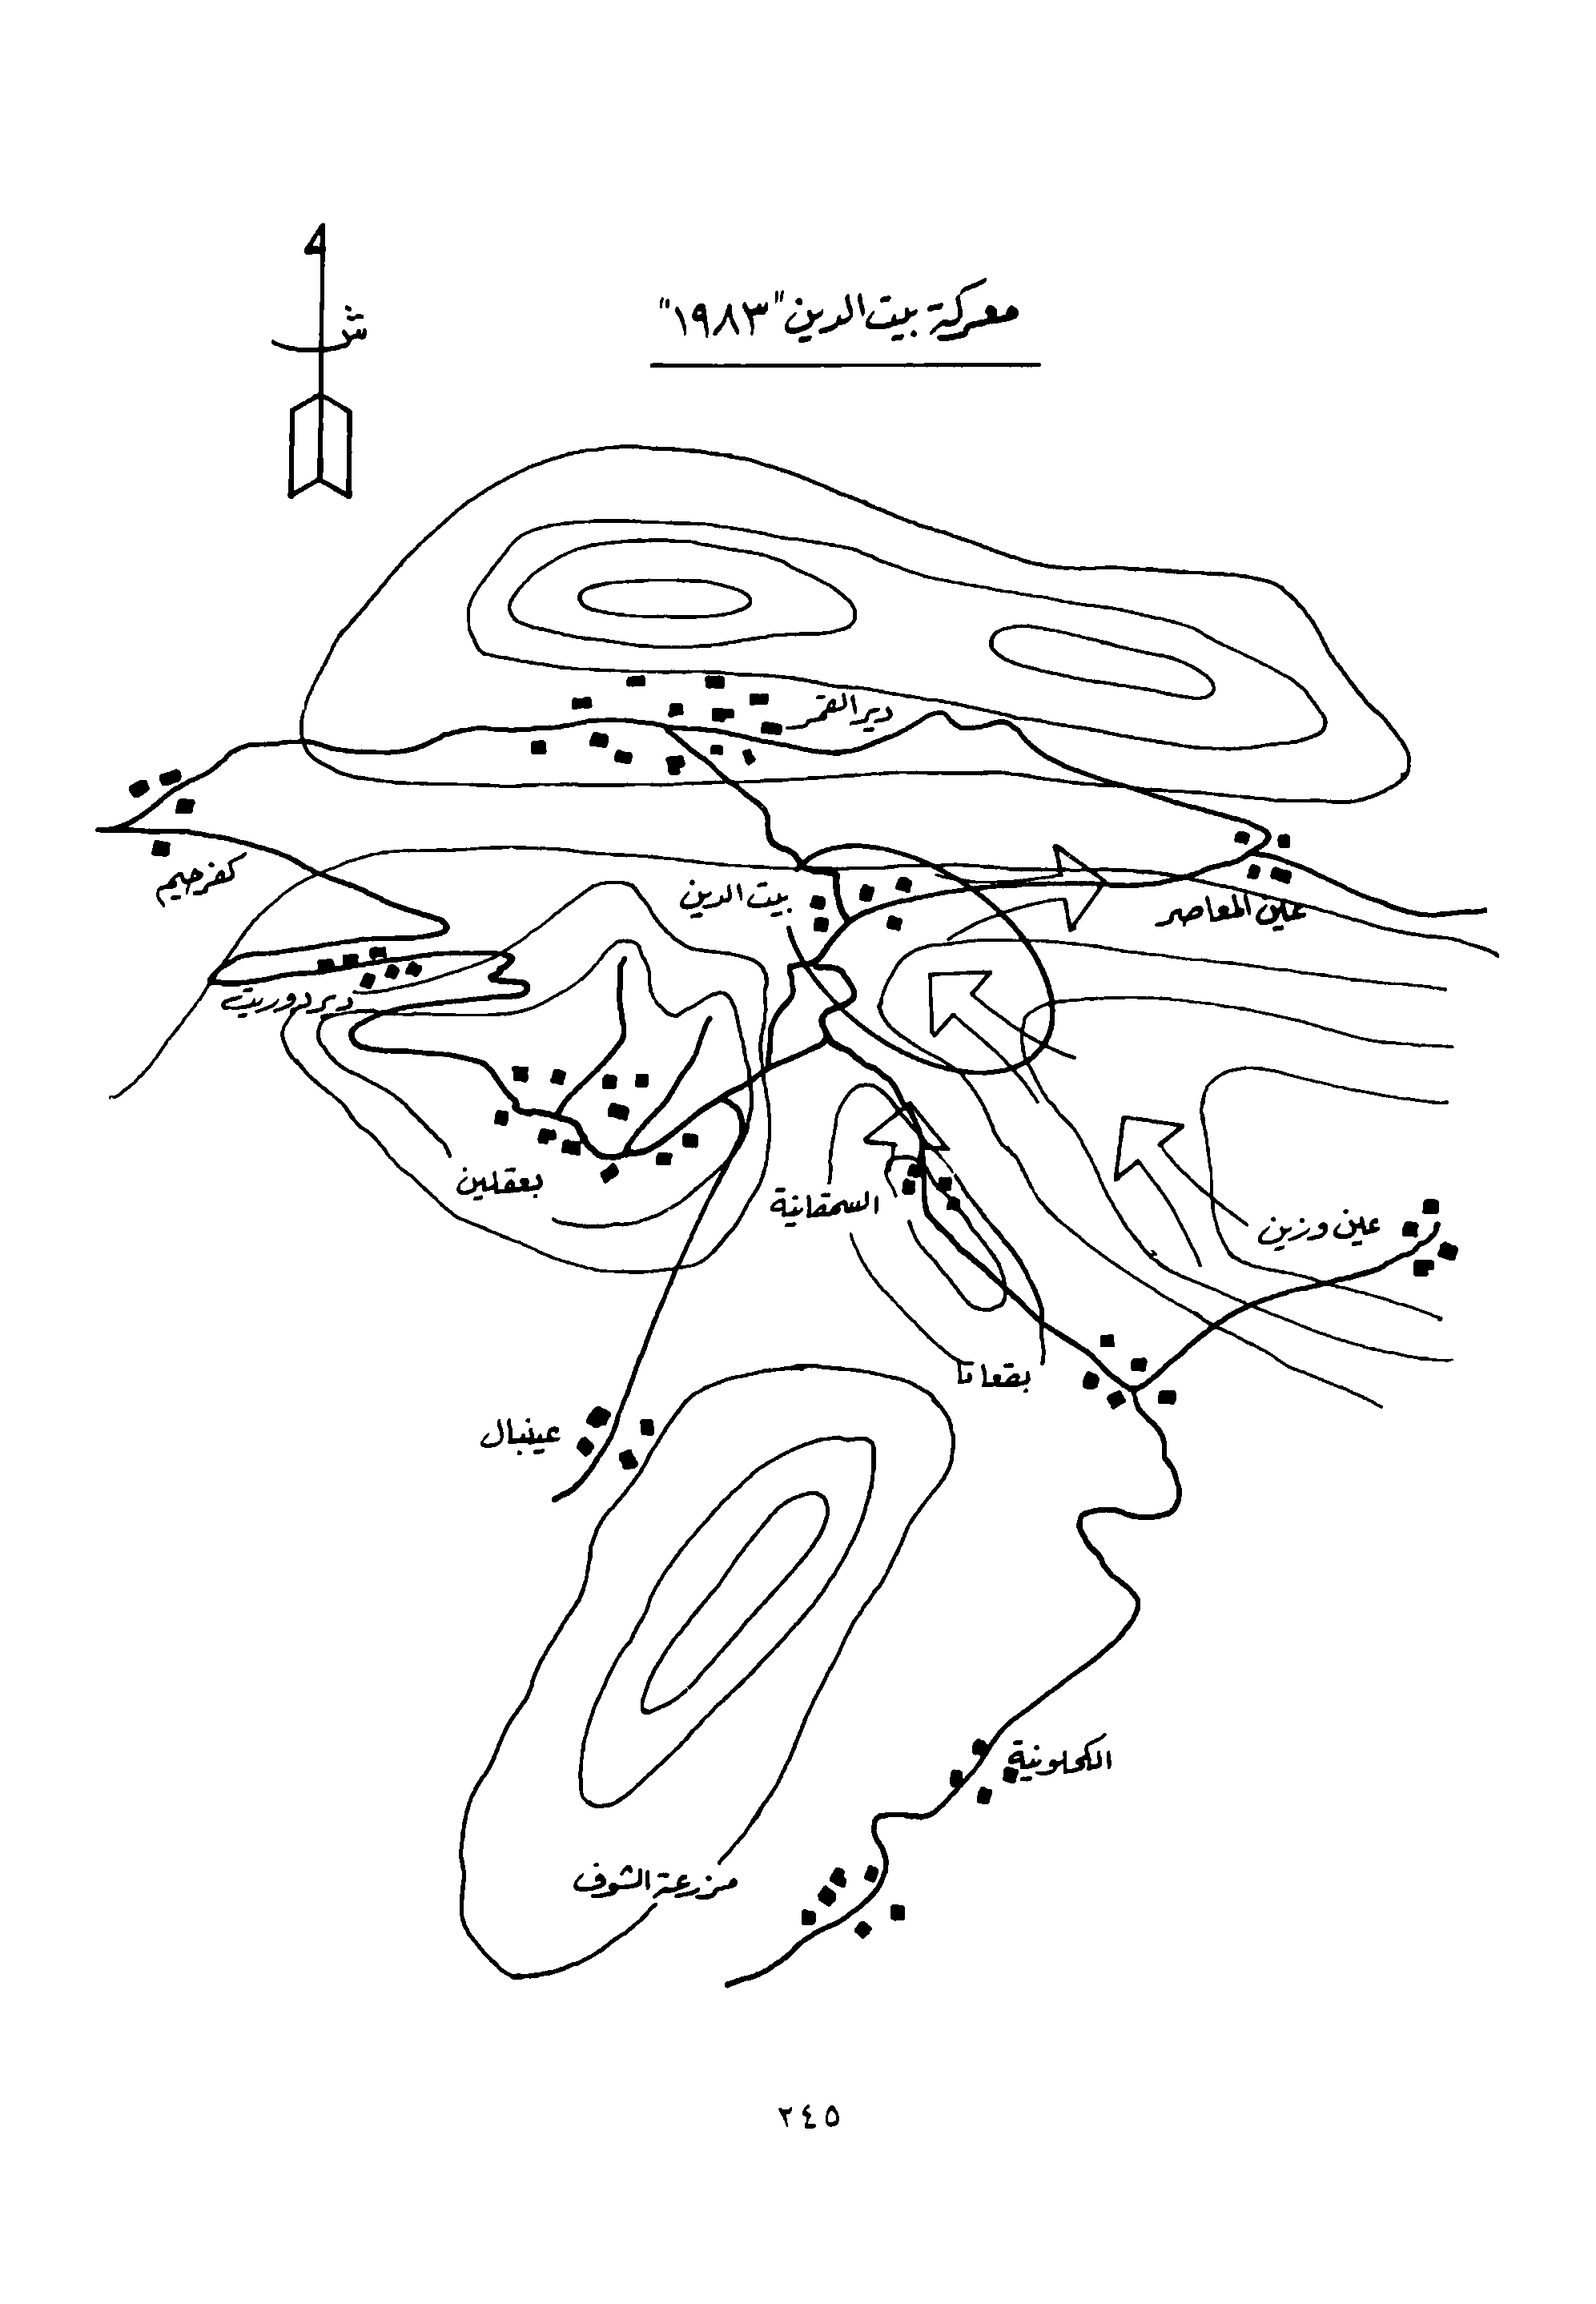 ش
معركة بيت الدين "١٩٨٣"
دير القمر
كفرحيم
بيت الدين
عين المعاصر
دير دوريت
بعقلين
السمقانية
عين وزين
بقعاتا
عينبال
الكحلونية
مزرعة الشوف
٢٤٥